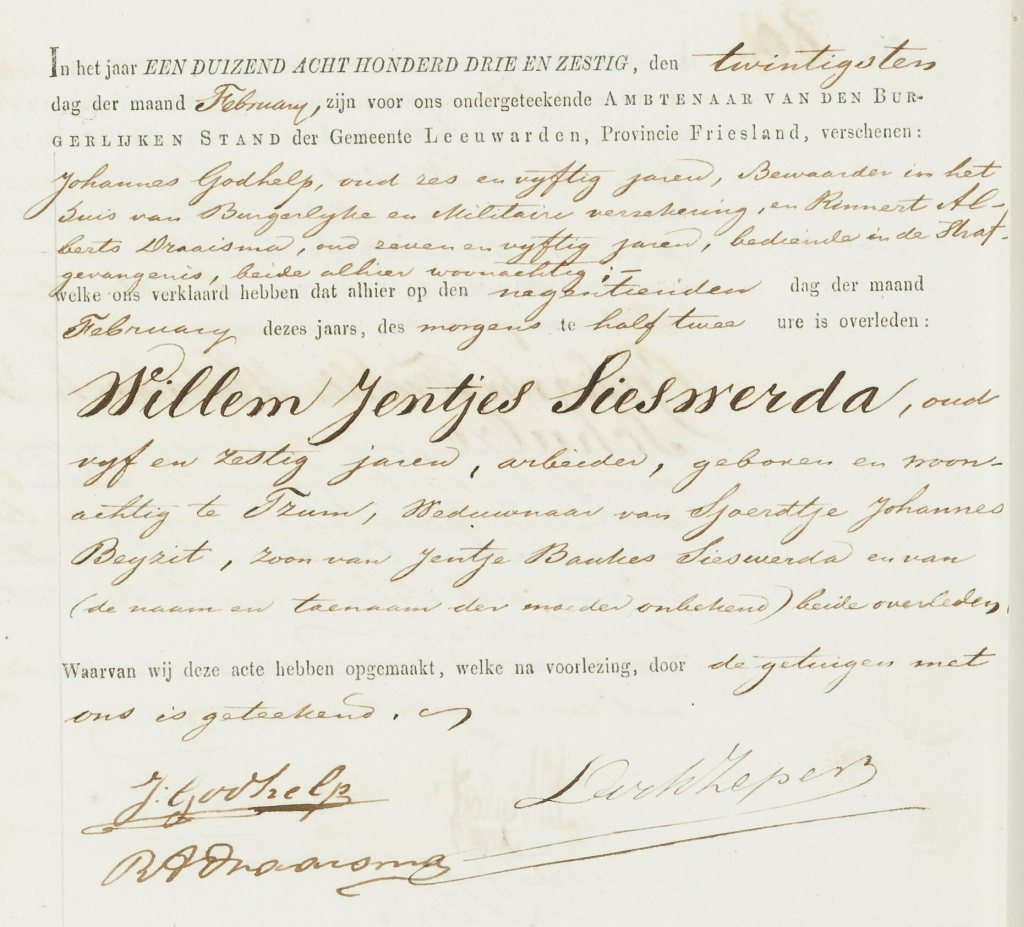 In het jaar EEN DUIZEND ACHT HONDERD DRIE EN ZESTIG, den twintigsten
dag der maand February, zijn voor ons ondergeteekende AMBTENAAR VAN DEN BUR-
GERLIJKEN STAND der Gemeente Leeuwarden, Provincie Friesland, verschenen:
Johannes Godhelp, oud zes en vyftig jaren, Bewaarder in het
huis van Burgerlyke en Militaire verzekering, en Rinnert Al-
berts Draaisma, oud zeven en vyftig jaren, bediende in de Straf-
gevangenis, beide alhier woonachtig;-
welke ons verklaard hebben dat alhier op den negentienden dag der maand
February dezes jaars, des morgens te half twee ure is overleden:
Willem Jentjes Sieswerda, oud
vyf en zestig jaren, arbeider, geboren en woon-
achtig te Tzum, Weduwnaar van Sjoerdtje Johannes
Beyzit, zoon van Jentje Baukes Sieswerda en van
(de naam en toenaam der moeder onbekend) beide overleden.
Waarvan wij deze acte hebben opgemaakt, welke na voorlezing, door de getuigen met
ons is geteekend.
J. Godhelp
Dirk Zeper
R A Draaisma